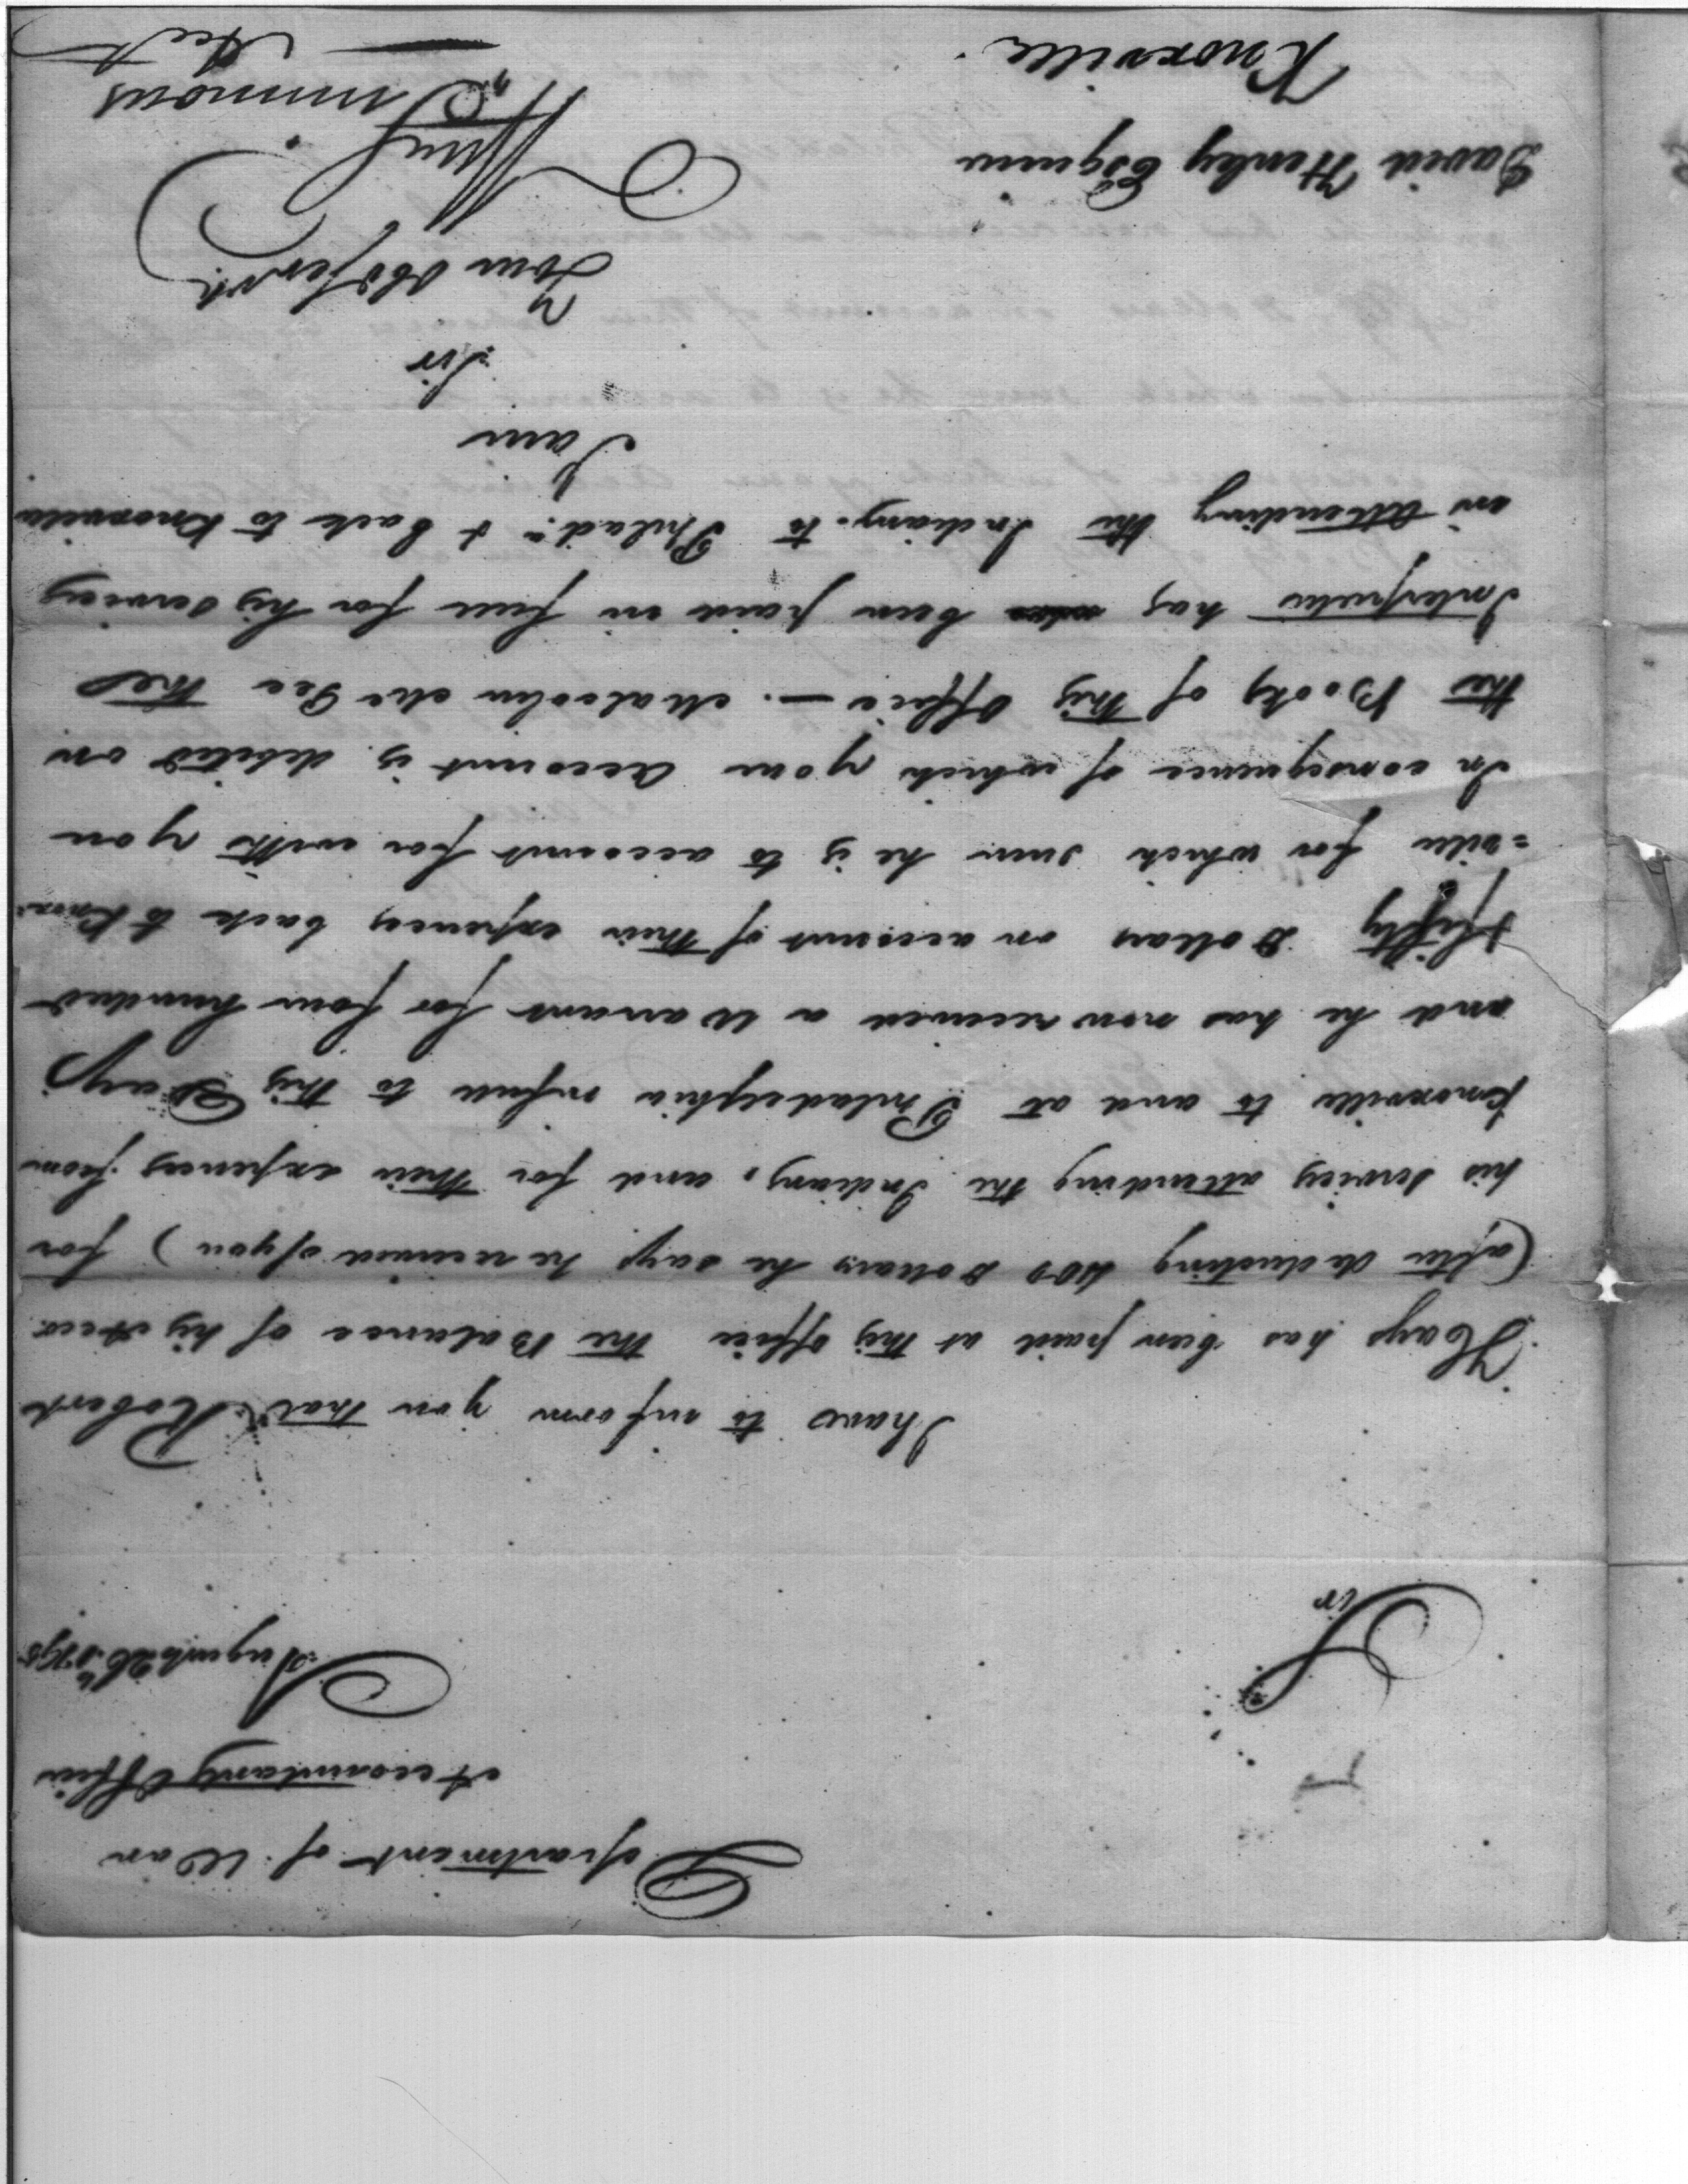 Department of War
Accountants Office
August 26th 1795
Sir
I have to inform you that Robert
Hays has been paid at this office the Balance of his Acct.
(after deducting 400 Dollars he says he received of you) for
his services attending the Indians, and for their expences from
Knoxville to and at Philadelphia in full to this Day,
and he has now received a Warrant for four hundred
fifty Dollars on account of their expences back to Knox:
=ville for which sum he is to account for with you
In consequence of which your account is debited on
the Books of this Office —. Malcolm McGee the
Interpreter has been paid in full for his Services
in attending the Indians to Philada. & back to Knoxville
I am
Sir
Your Obd Servt.
Wm. Simmons
Acct
David Henley Esquire
Knoxville.